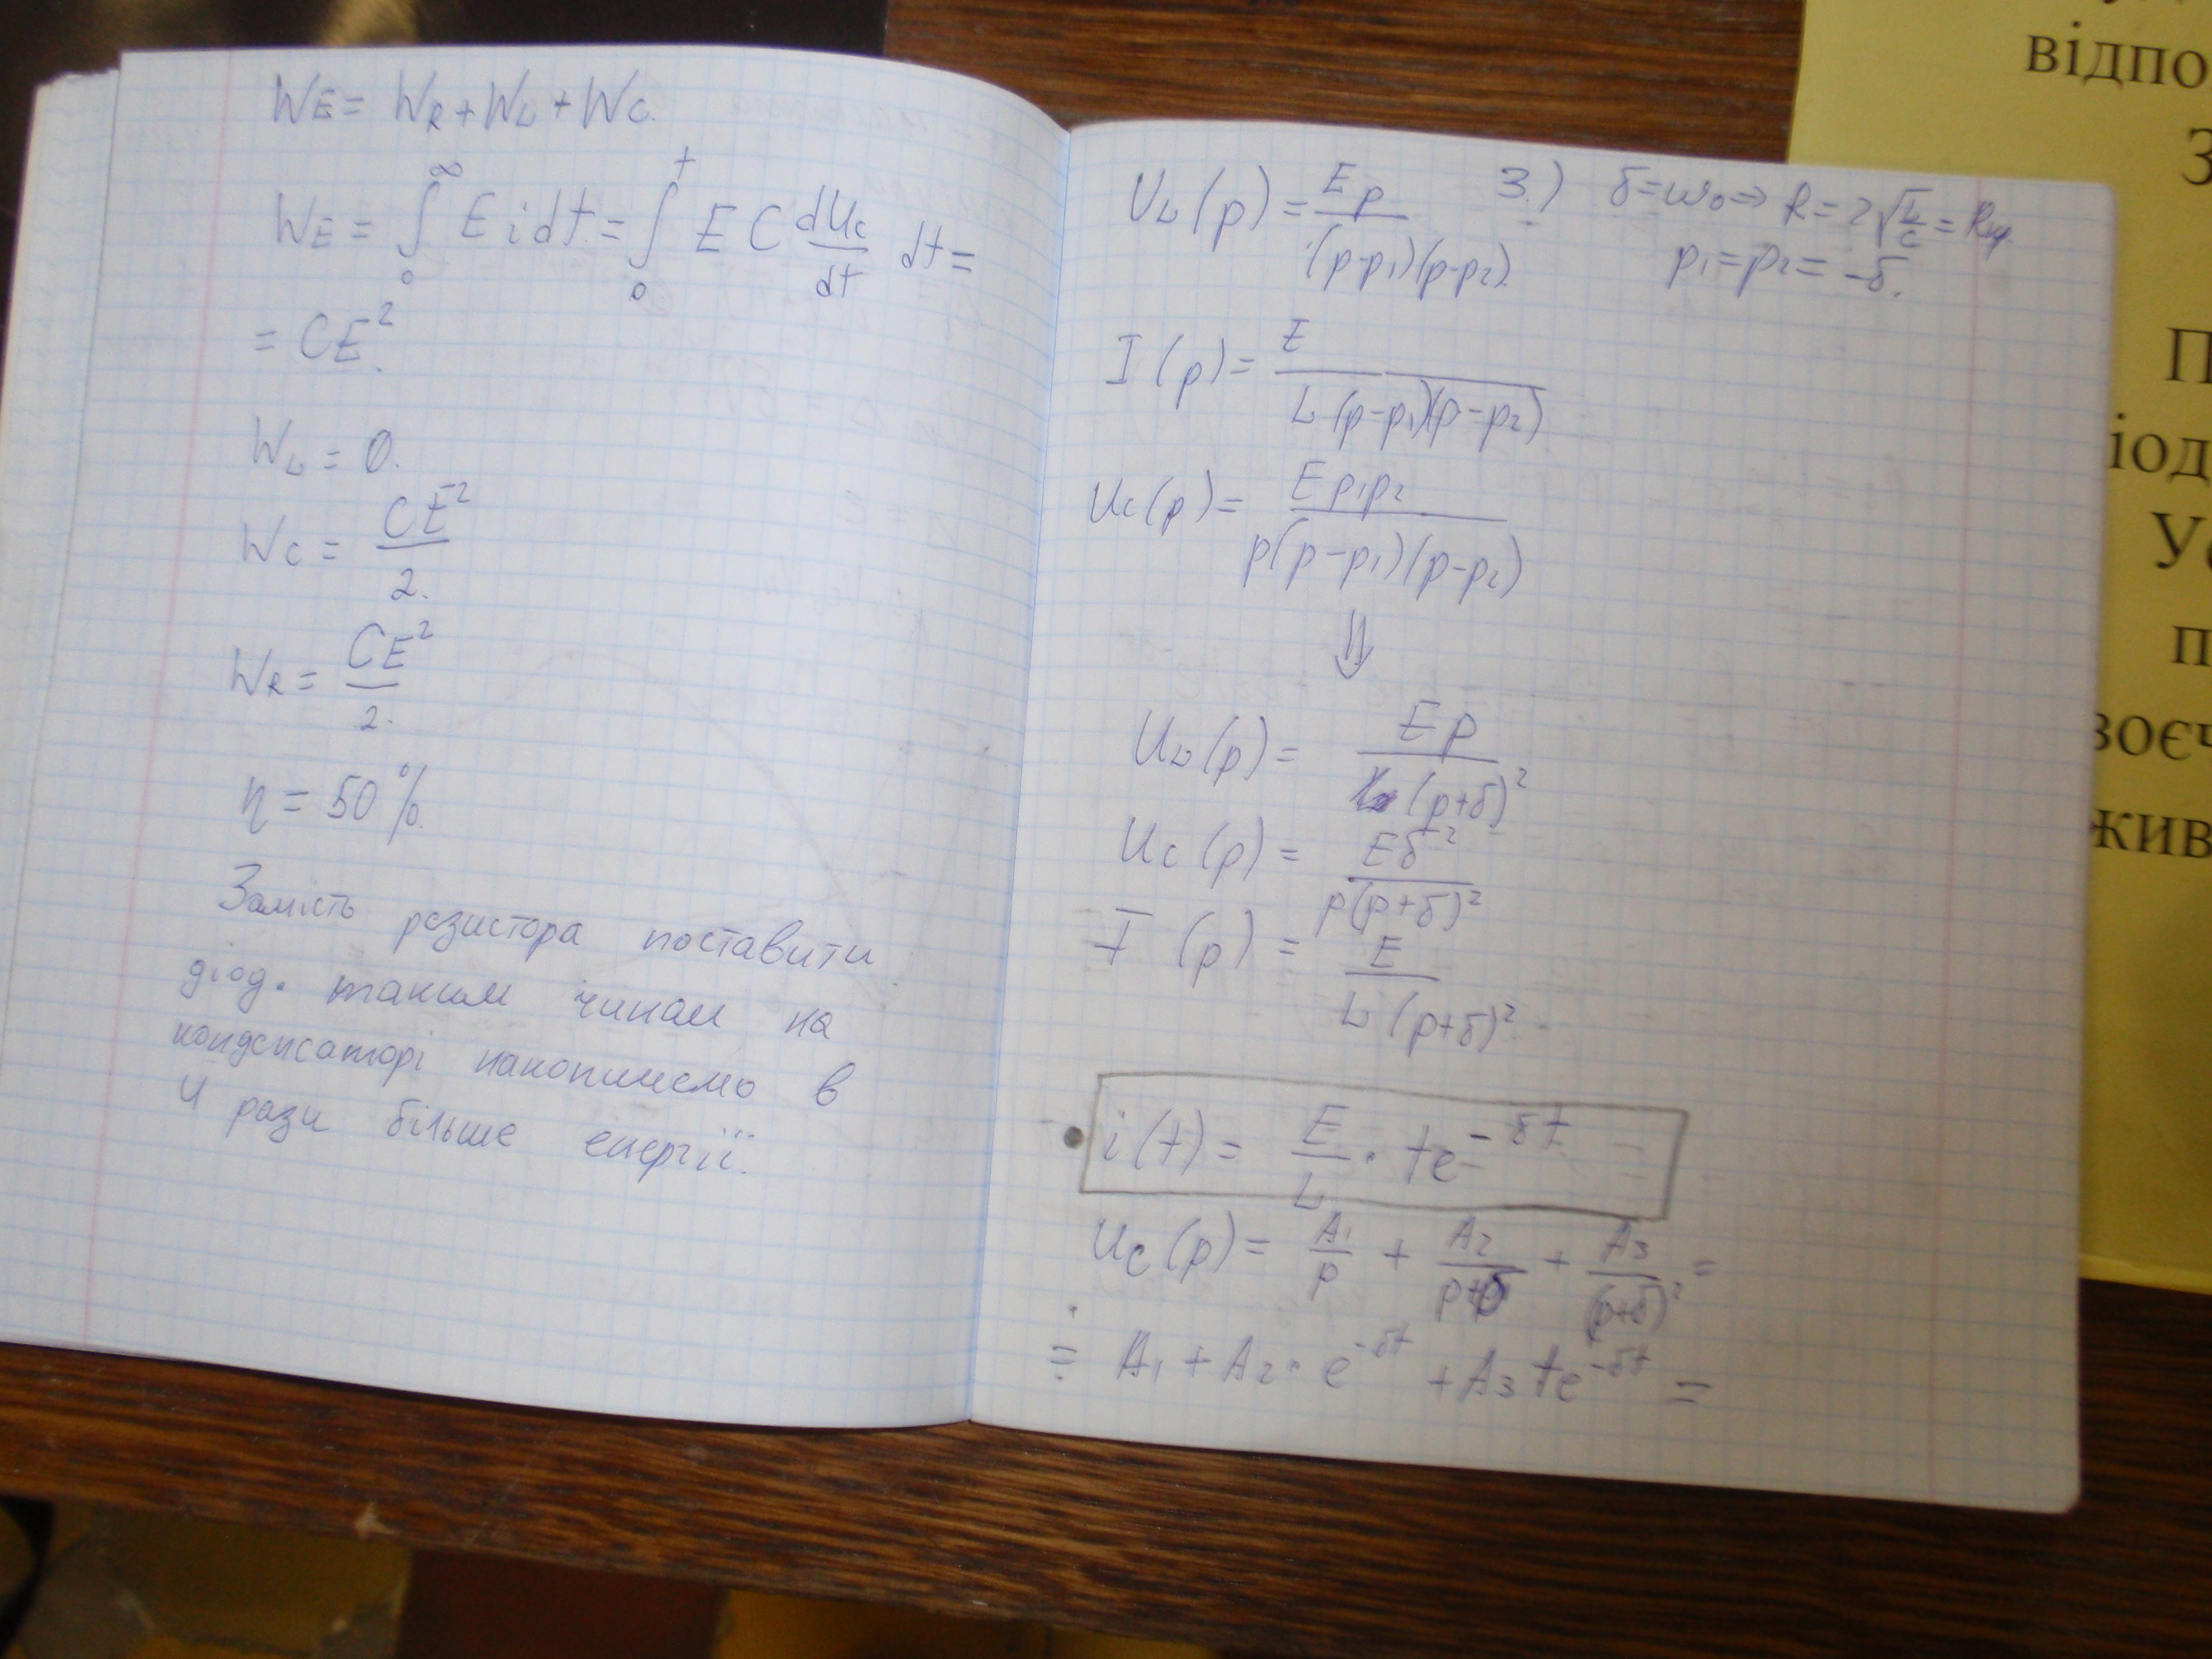 WE = WR + WL + WC.
WE = ∫₀^∞ E i dt = ∫₀^t E C dUc/dt dt =
= CE².
WL = 0.
WC = CE²/2.
WR = CE²/2.
η = 50%.
Замість резистора поставити
діод. таким чином на
конденсаторі накопичемо в
4 рази більше енергії.
UL(p) = Ep/((p-p₁)(p-p₂)) 3.) δ=ω₀ ⇒ R = 2√(L/C) = Rкр.
p₁=p₂= -δ.
I(p) = E/(L(p-p₁)(p-p₂))
Uc(p) = Ep₁p₂/(p(p-p₁)(p-p₂))
⇓
UL(p) = Ep/(p+δ)²
Uc(p) = Eδ²/(p(p+δ)²)
I(p) = E/(L(p+δ)²)
i(t) = E/L · te^(-δt)
Uc(p) = A₁/p + A₂/(p+δ) + A₃/(p+δ)² =
≓ A₁ + A₂ · e^(-δt) + A₃te^(-δt) =
відпо
З
П
іод
Ус
п
воєч
жив